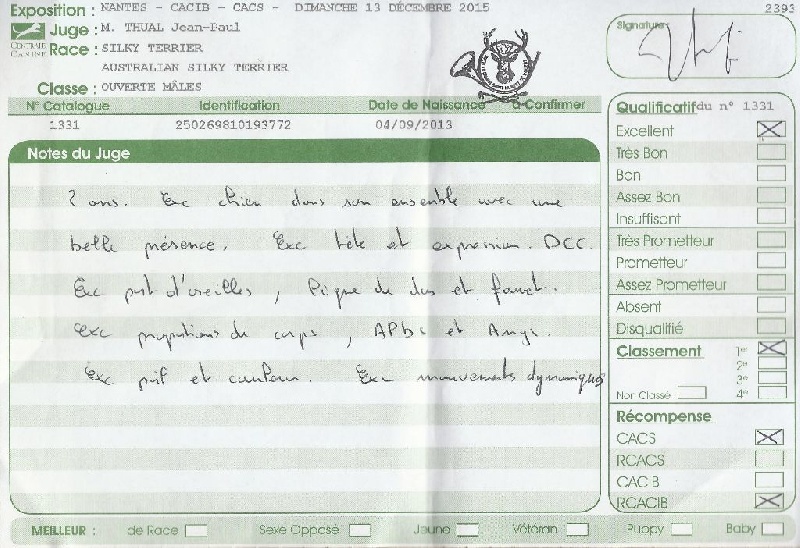 Exposition : NANTES - CACIB - CACS - DIMANCHE 13 DÉCEMBRE 2015
2393
Juge : M. THUAL Jean-Paul
Signature
CENTRALE CANINE
Race : SILKY TERRIER
AUSTRALIAN SILKY TERRIER
Classe : OUVERTE MÂLES
N° Catalogue Identification Date de Naissance à Confirmer
1331 250269810193772 04/09/2013
Notes du Juge
2 ans. Exc chien dans son ensemble avec une
belle présence. Exc tête et expression. DCC.
Exc port d'oreilles, de dos et fouet.
Exc proportions du corps, et Ang.
Exc poil et couleur. Exc mouvements dynamiques
Qualificatif du n° 1331
Excellent
Très Bon
Bon
Assez Bon
Insuffisant
Très Prometteur
Prometteur
Assez Prometteur
Absent
Disqualifié
Classement 1er
2e
3e
Non Classé 4e
Récompense
CACS
RCACS
CACIB
RCACIB
MEILLEUR : de Race Sexe Opposé Jeune Vétéran Puppy Baby